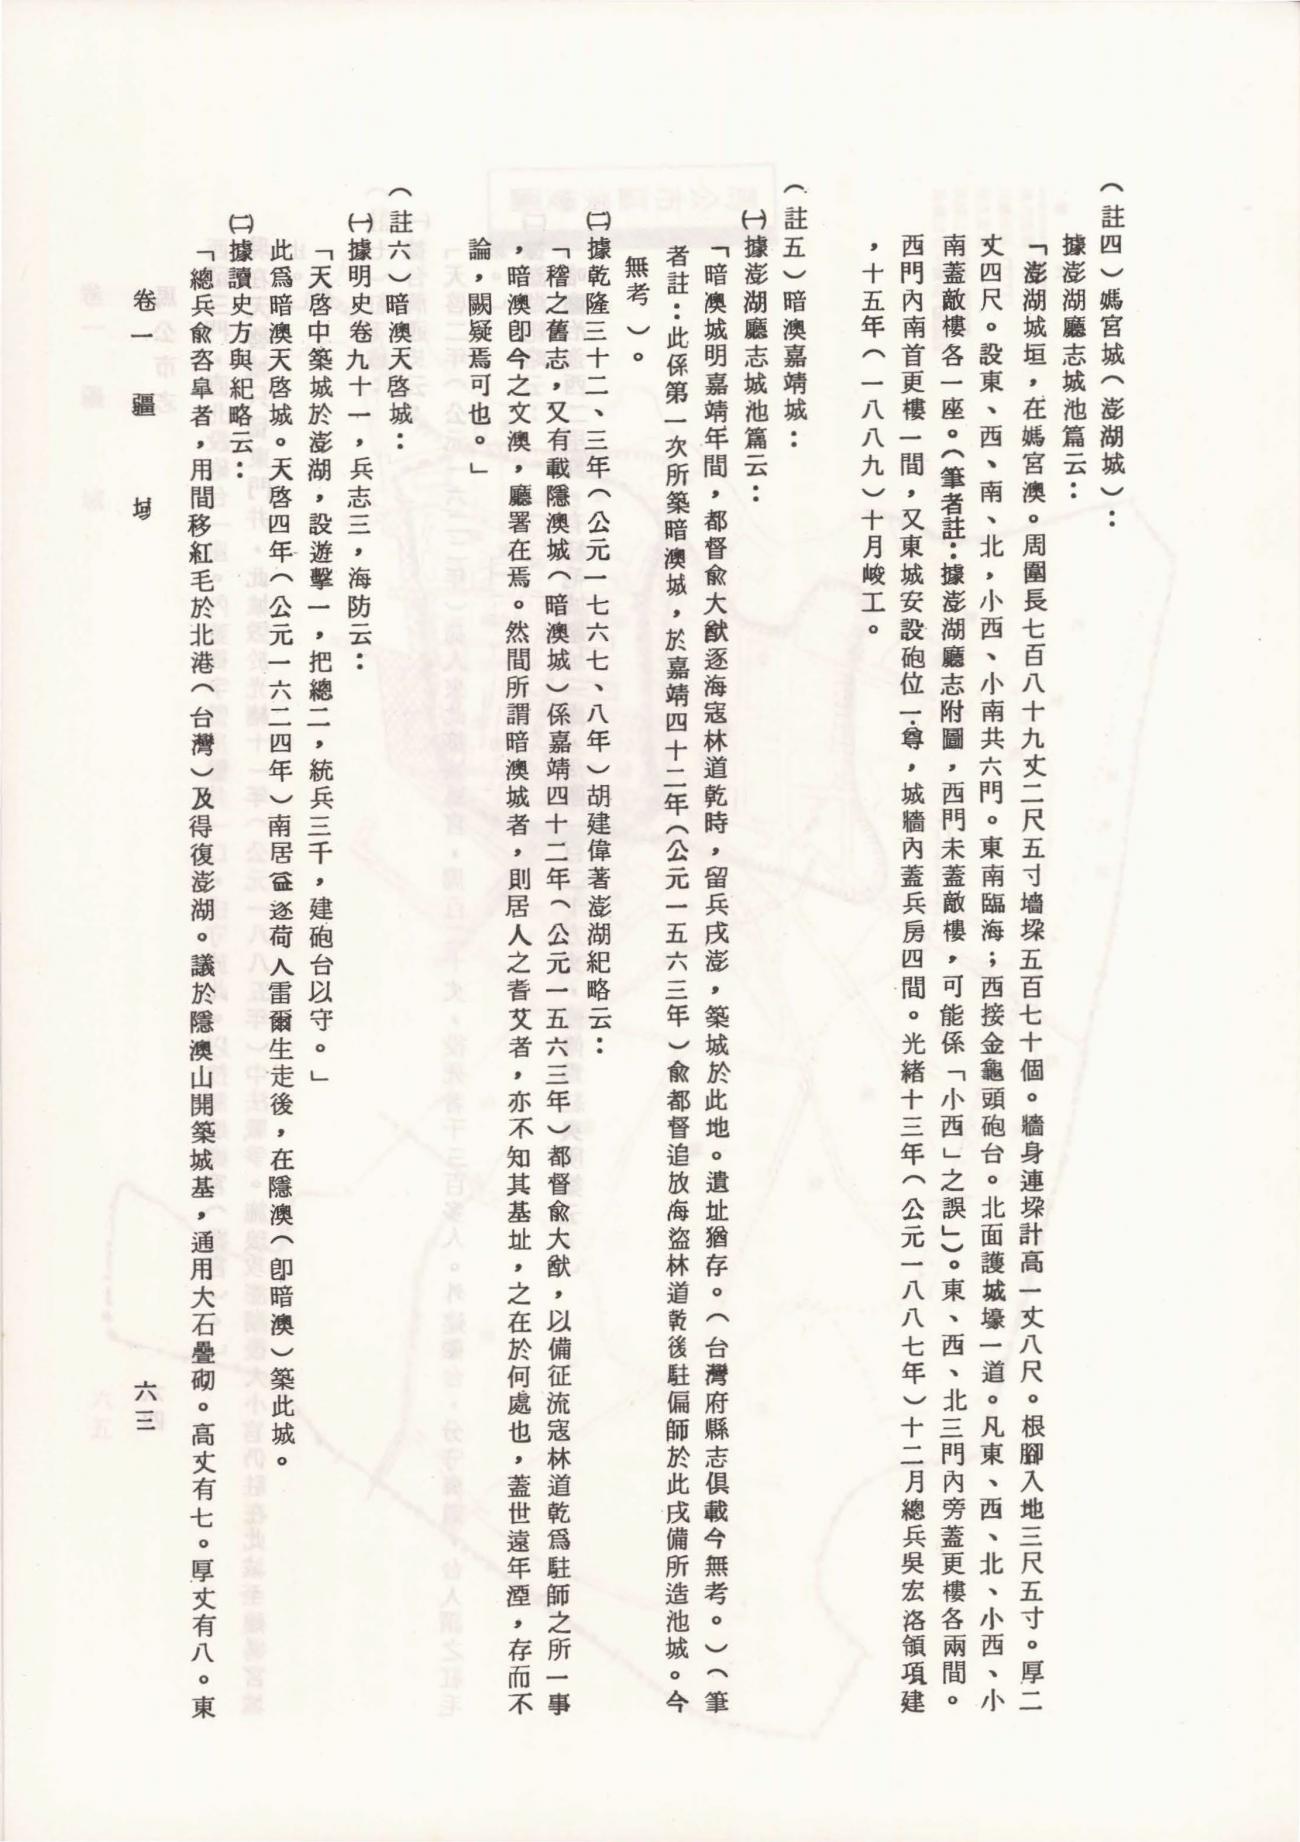 （註四）媽宮城（澎湖城）：
據澎湖廳志城池篇云：
「澎湖城垣，在媽宮澳。周圍長七百八十九丈二尺五寸墻垜五百七十個。牆身連垜計高一丈八尺。根腳入地三尺五寸。厚二
丈四尺。設東、西、南、北，小西、小南共六門。東南臨海；西接金龜頭砲台。北面護城壕一道。凡東、西、北、小西、小
南蓋敵樓各一座。（筆者註：據澎湖廳志附圖，西門未蓋敵樓，可能係「小西」之誤」）。東、西、北三門內旁蓋更樓各兩間。
西門內南首更樓一間，又東城安設砲位一尊，城牆內蓋兵房四間。光緒十三年（公元一八八七年）十二月總兵吳宏洛領項建
，十五年（一八八九）十月峻工。
（註五）暗澳嘉靖城：
㈠據澎湖廳志城池篇云：
「暗澳城明嘉靖年間，都督兪大猷逐海寇林道乾時，留兵戌澎，築城於此地。遺址猶存。（台灣府縣志俱載今無考。）（筆
者註：此係第一次所築暗澳城，於嘉靖四十二年（公元一五六三年）兪都督追放海盜林道乾後駐偏師於此戌備所造池城。今
無考）。
㈡據乾隆三十二、三年（公元一七六七、八年）胡建偉著澎湖紀略云：
「稽之舊志，又有載隱澳城（暗澳城）係嘉靖四十二年（公元一五六三年）都督兪大猷，以備征流寇林道乾爲駐師之所一事
，暗澳卽今之文澳，廳署在焉。然間所謂暗澳城者，則居人之耆艾者，亦不知其基址，之在於何處也，蓋世遠年湮，存而不
論，闕疑焉可也。」
（註六）暗澳天啓城：
㈠據明史卷九十一，兵志三，海防云：
「天啓中築城於澎湖，設遊擊一，把總二，統兵三千，建砲台以守。」
此爲暗澳天啓城。天啓四年（公元一六二四年）南居益逐荷人雷爾生走後，在隱澳（卽暗澳）築此城。
㈡據讀史方輿紀略云：
「總兵兪咨臯者，用間移紅毛於北港（台灣）及得復澎湖。議於隱澳山開築城基，通用大石疊砌。高丈有七。厚丈有八。東
卷一　疆　域　六三